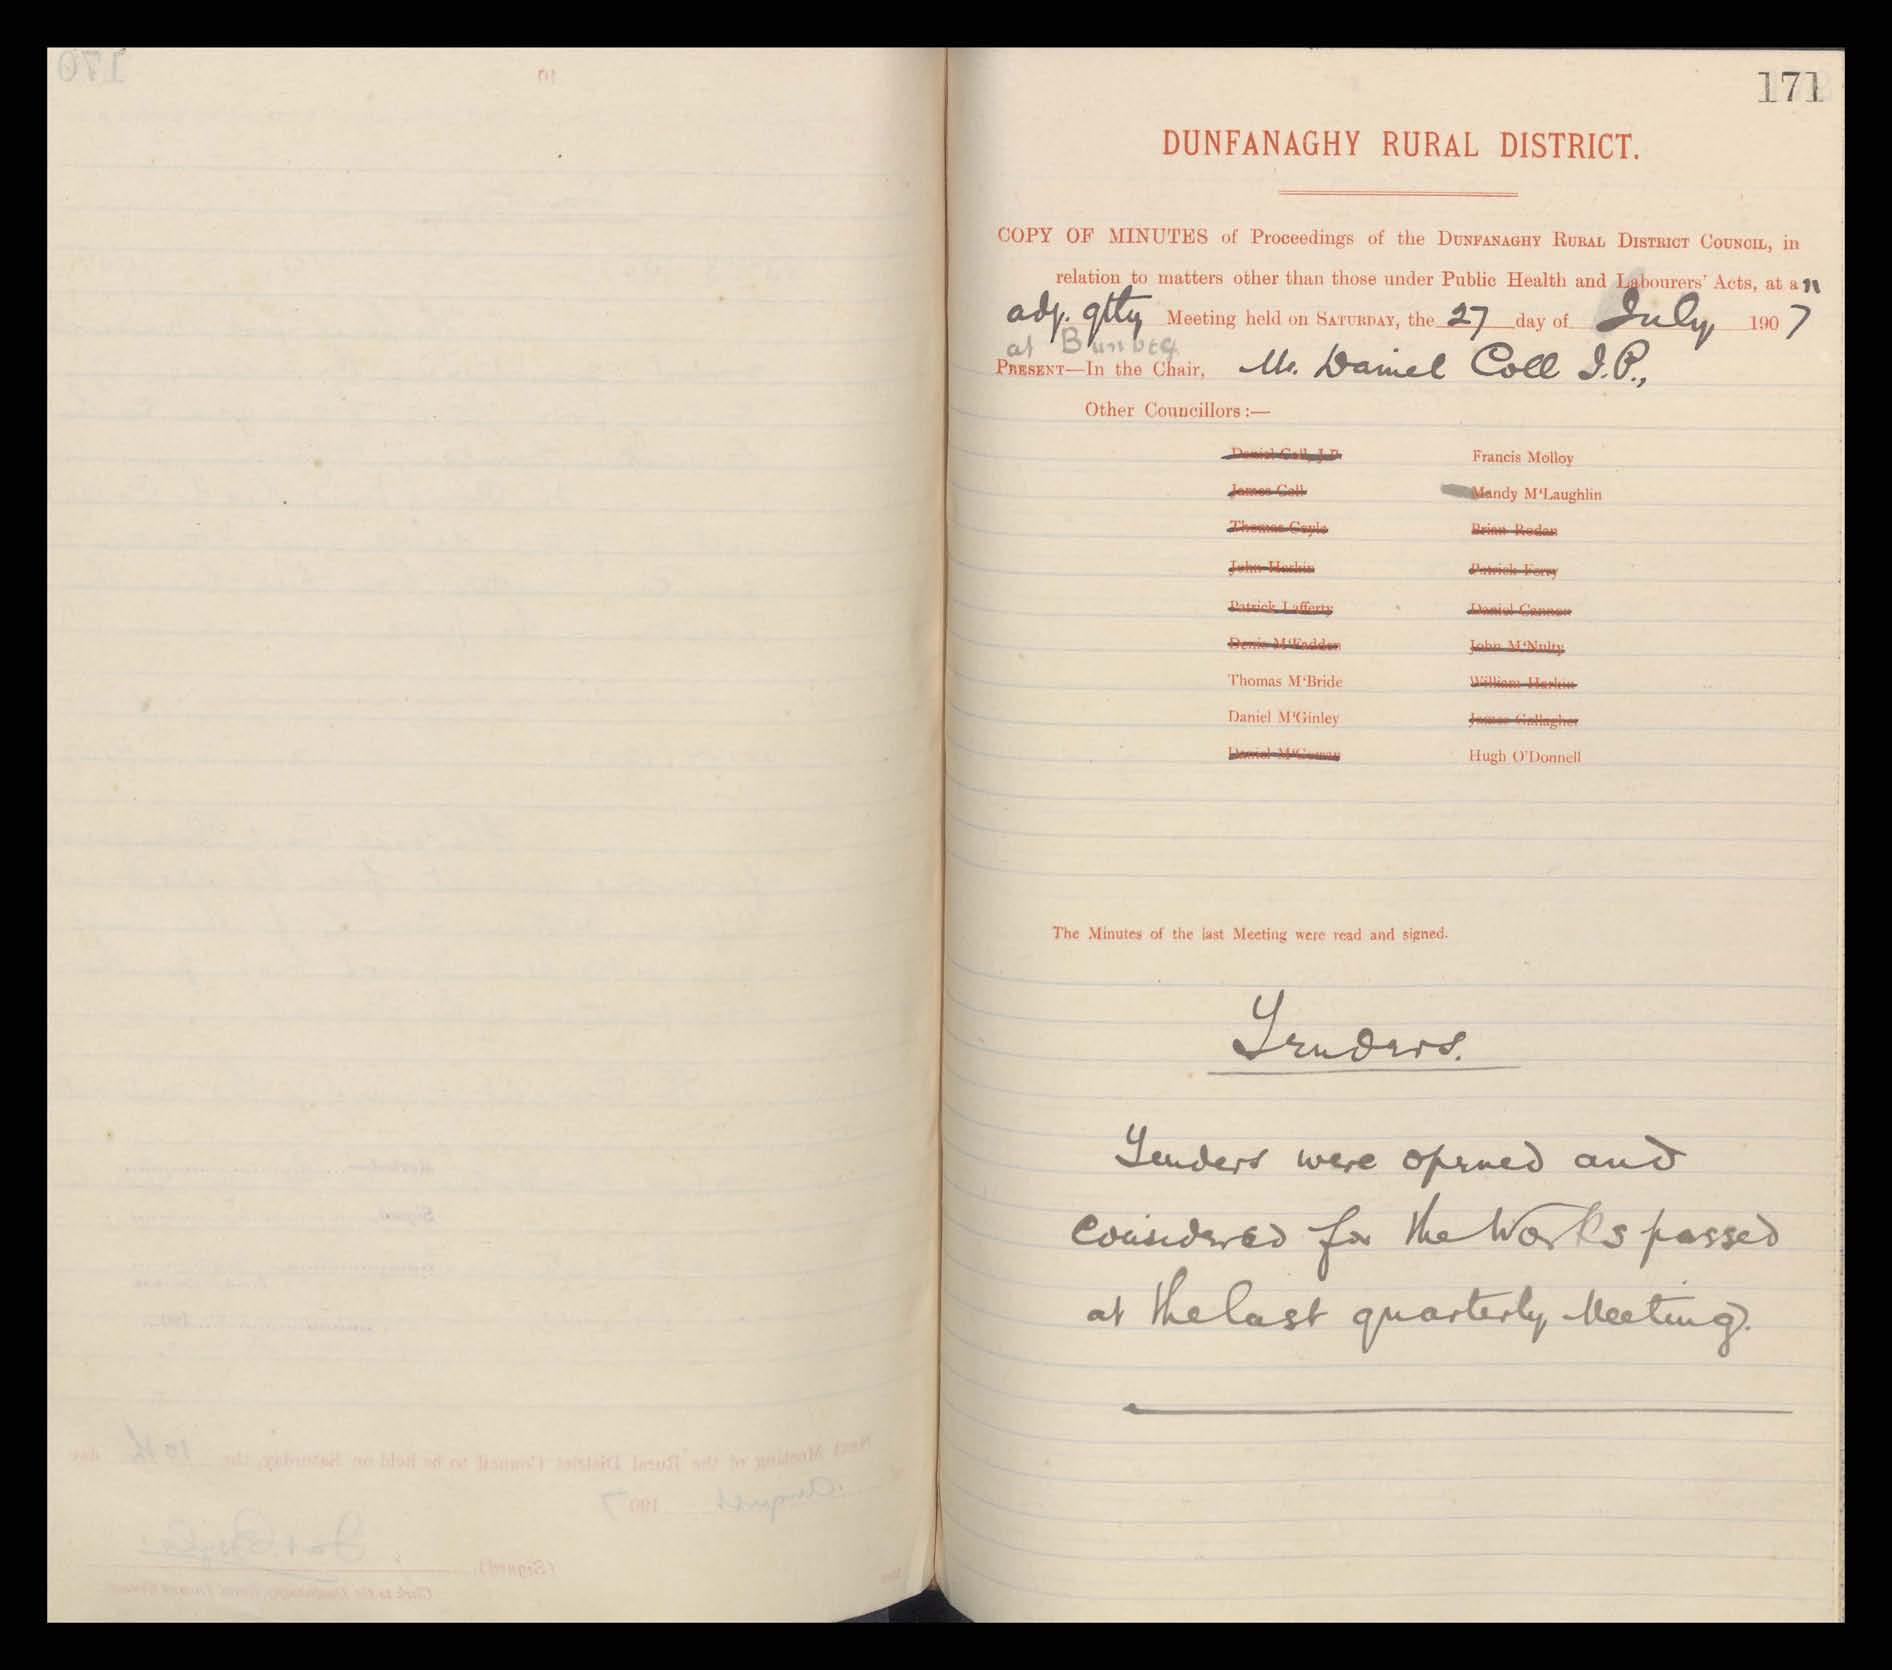 171
DUNFANAGHY RURAL DISTRICT.
COPY OF MINUTES of Proceedings of the DUNFANAGHY RURAL DISTRICT COUNCIL, in
relation to matters other than those under Public Health and Labourers' Acts, at an
adj. qtly Meeting held on SATURDAY, the 27 day of July, 1907
at Bunbeg
PRESENT—In the Chair, Mr. Daniel Coll J.P.,
Other Councillors:—
Daniel Coll, J.P. Francis Molloy
James Coll Mandy M'Laughlin
Thomas Coyle Brian Rodan
John Harkin Patrick Ferry
Patrick Lafferty Daniel Cannon
Denis M'Fadden John M'Nulty
Thomas M'Bride William Harkin
Daniel M'Ginley James Gallagher
Daniel M'Gowan Hugh O'Donnell
The Minutes of the last Meeting were read and signed.
Tenders.
Tenders were opened and
considered for the Works passed
at the last quarterly Meeting.